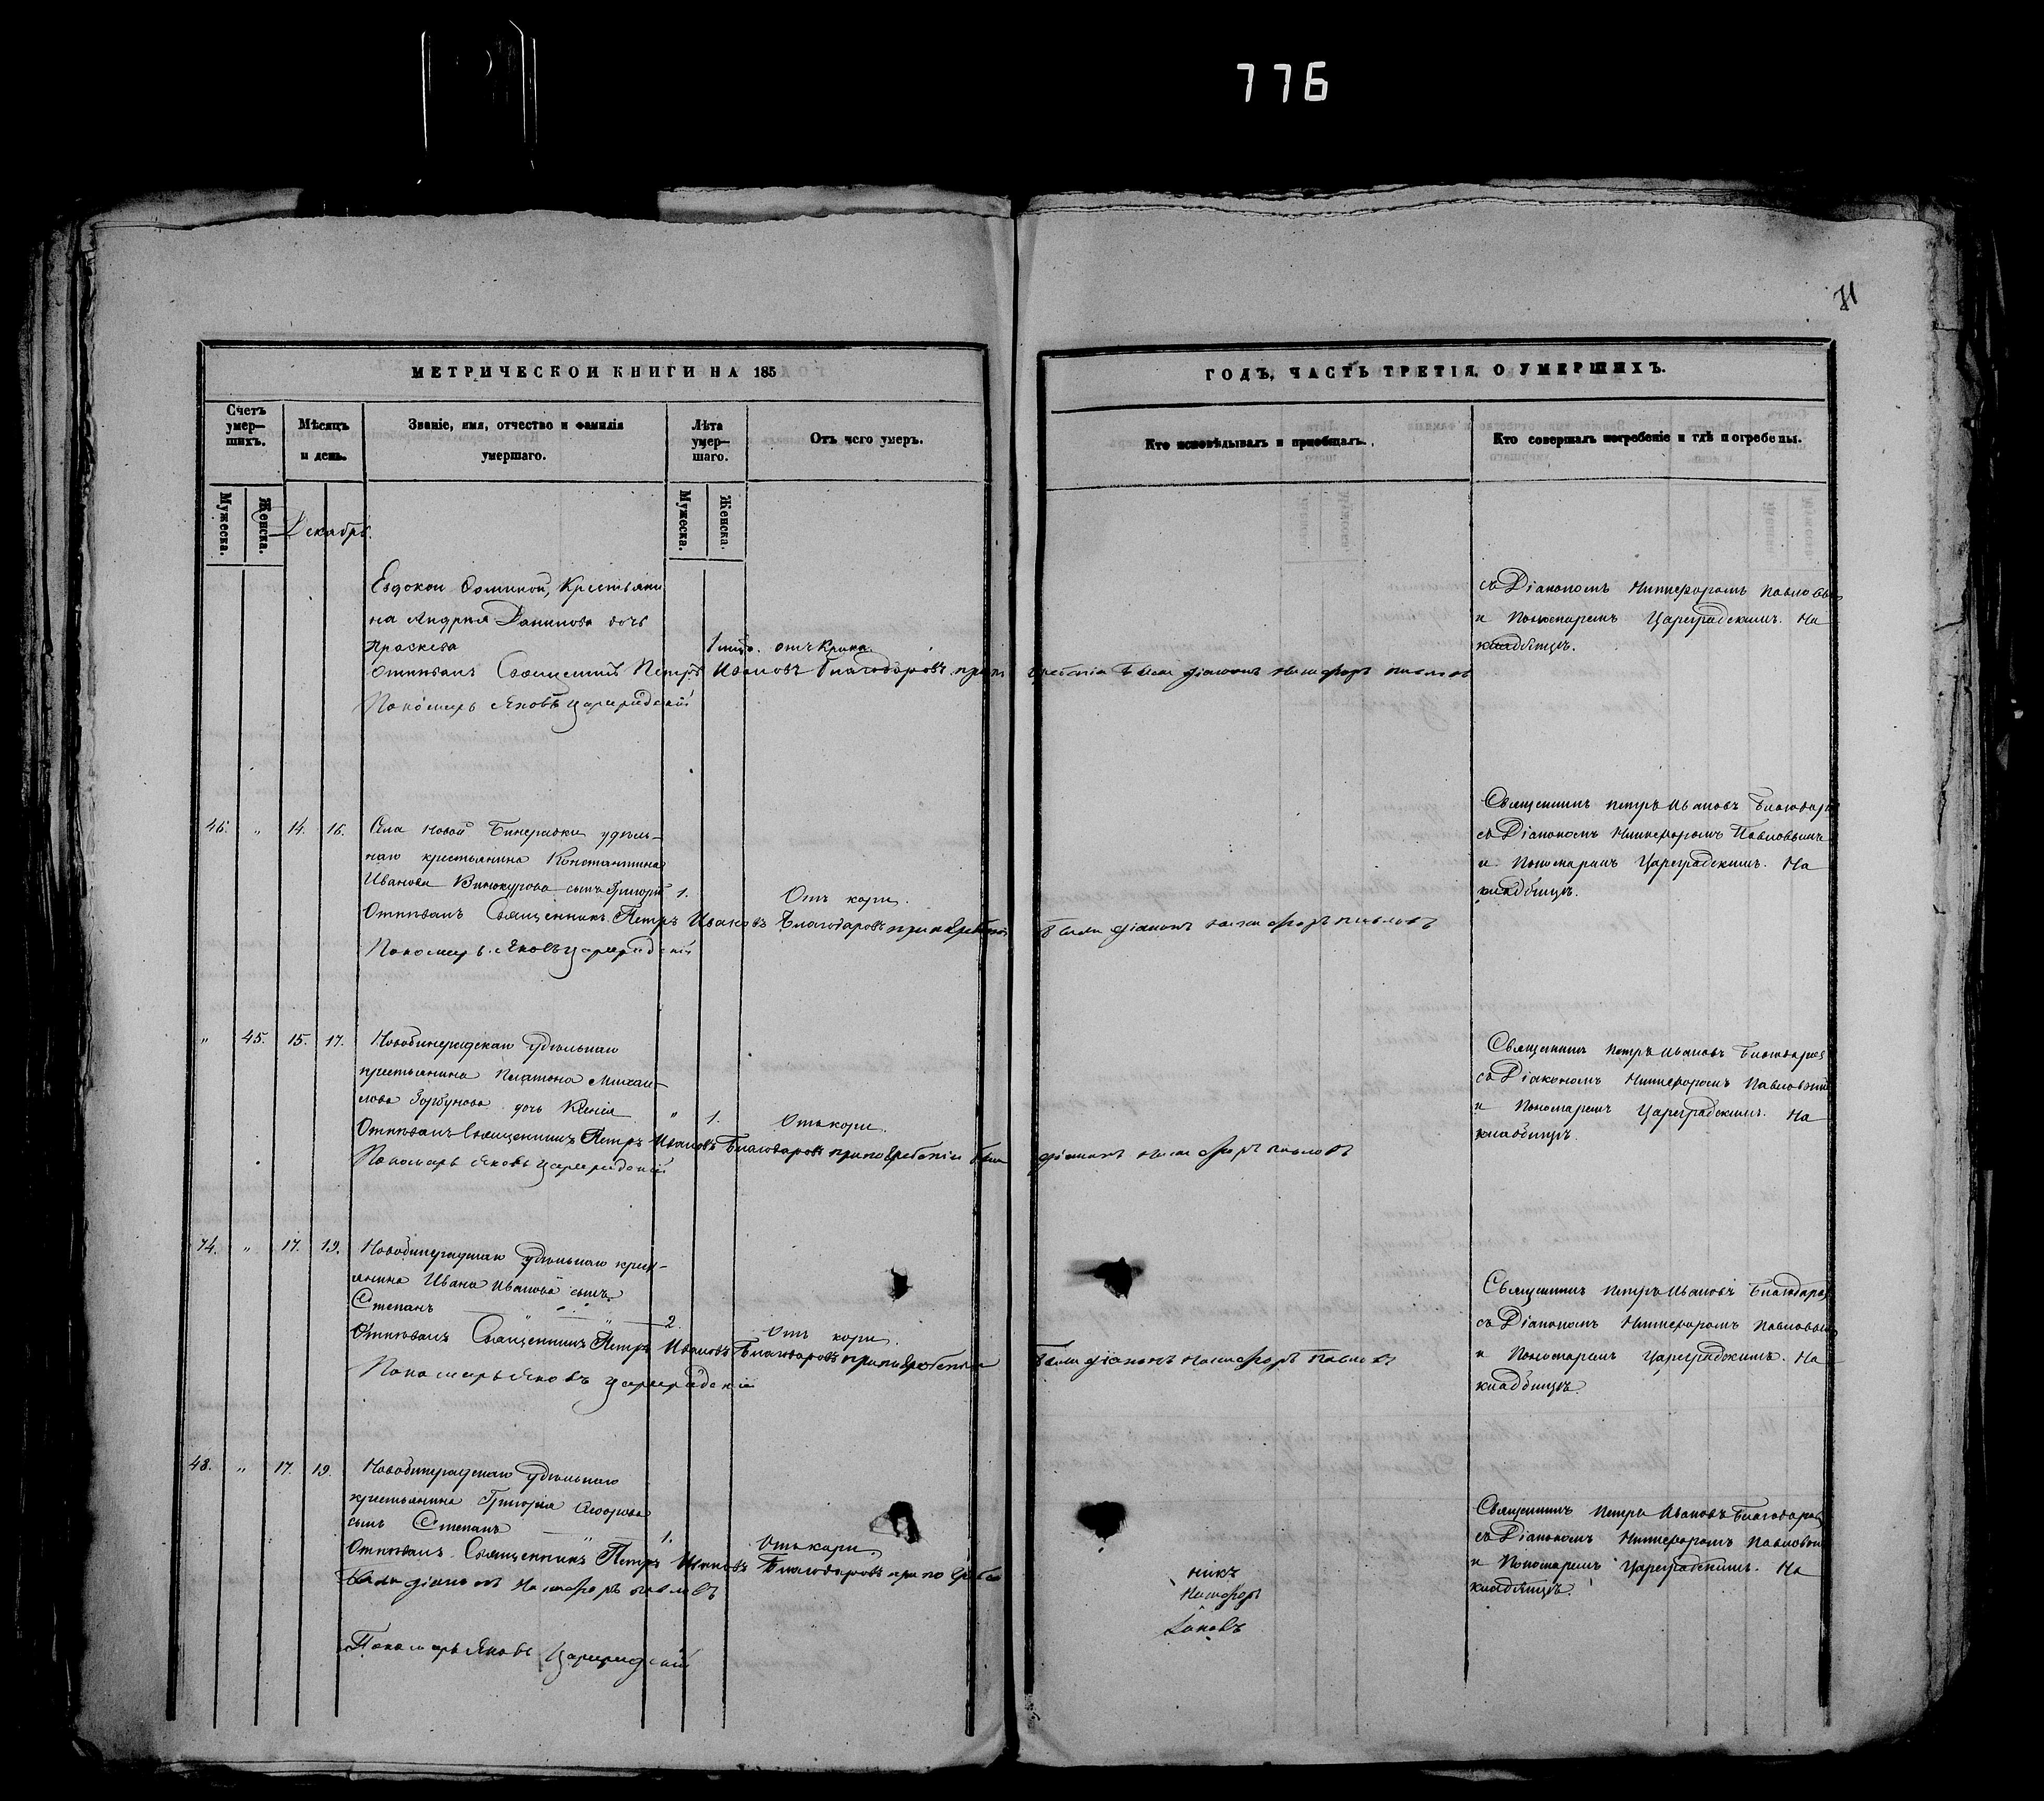 776
71
МЕТРИЧЕСКОЙ КНИГИ НА 185
ГОДЪ, ЧАСТЬ ТРЕТІЯ, О УМЕРШИХЪ.
Счетъ умер-шихъ.
Мѣсяцъ и день.
Званіе, имя, отчество и фамилія умершаго.
Лѣта умер-шаго.
Отъ чего умеръ.
Кто исповѣдывалъ и пріобщалъ.
Кто совершалъ погребеніе и гдѣ погребены.
Мужеска.
Женска.
Мужеска.
Женска.
Декабрь.
Крестьяни
на Андрея Данилова дочь
отъ крика.
Отпѣвалъ Священникъ Петръ Ивановъ Благодаровъ при по гребеніи были діаконъ Никифоръ Павловъ
Пономарь Яковъ Цареградскій
съ Діакономъ Никифоромъ Павловы
и Пономаремъ Цареградскимъ. На
кладбищѣ.
46. " 14. 16. Села Новой Бинарадки удѣль-
наго крестьянина Константина
Иванова Винокурова сынъ Григорій 1.
Отъ кори.
Отпѣвалъ Священникъ Петръ Ивановъ Благодаровъ при погребеніи были діаконъ Никифоръ Павловъ
Пономарь Яковъ Цареградскій
Священникъ Петръ Ивановъ Благодаро
съ Діакономъ Никифоромъ Павловымъ
и Пономаремъ Цареградскимъ. На
кладбищѣ.
" 45. 15. 17. Новобинарадскаго удѣльнаго
крестьянина Платона Михаи-
лова Горбунова дочь Ксенія " 1. Отъ кори.
Отпѣвалъ Священникъ Петръ Ивановъ Благодаровъ при погребеніи были діаконъ Никифоръ Павловъ
Пономарь Яковъ Цареградскій
Священникъ Петръ Ивановъ Благодаровъ
съ Діакономъ Никифоромъ Павловымъ
и Пономаремъ Цареградскимъ. На
кладбищѣ.
74. " 17. 19. Новобинарадскаго удѣльнаго крест-
янина Ивана Иванова сынъ
Степанъ 2. Отъ кори.
Отпѣвалъ Священникъ Петръ Ивановъ Благодаровъ при погребеніи были діаконъ Никифоръ Павловъ
Пономарь Яковъ Цареградскій
Священникъ Петръ Ивановъ Благодаров
съ Діакономъ Никифоромъ Павловым
и Пономаремъ Цареградскимъ. На
кладбищѣ.
48. " 17. 19. Новобинарадскаго удѣльнаго
крестьянина Григорія Ѳедорова
сынъ Степанъ 1. Отъ кори
Отпѣвалъ Священникъ Петръ Ивановъ Благодаровъ при по гребе
были діаконъ Никифоръ Павловъ
Пономарь Яковъ Цареградскій
никъ
Никифоръ
Яковъ
Священникъ Петръ Ивановъ Благодаров
съ Діакономъ Никифоромъ Павловым
и Пономаремъ Цареградскимъ. На
кладбищѣ.